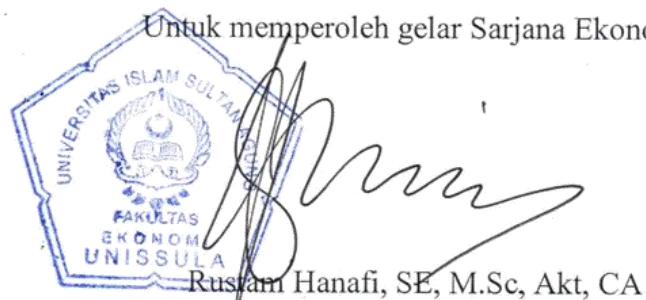 Untuk memperoleh gelar Sarjana Ekono
UNIVERSITAS ISLAM SULTAN AGUNG
FAKULTAS
EKONOMI
UNISSULA
Rustam Hanafi, SE, M.Sc, Akt, CA